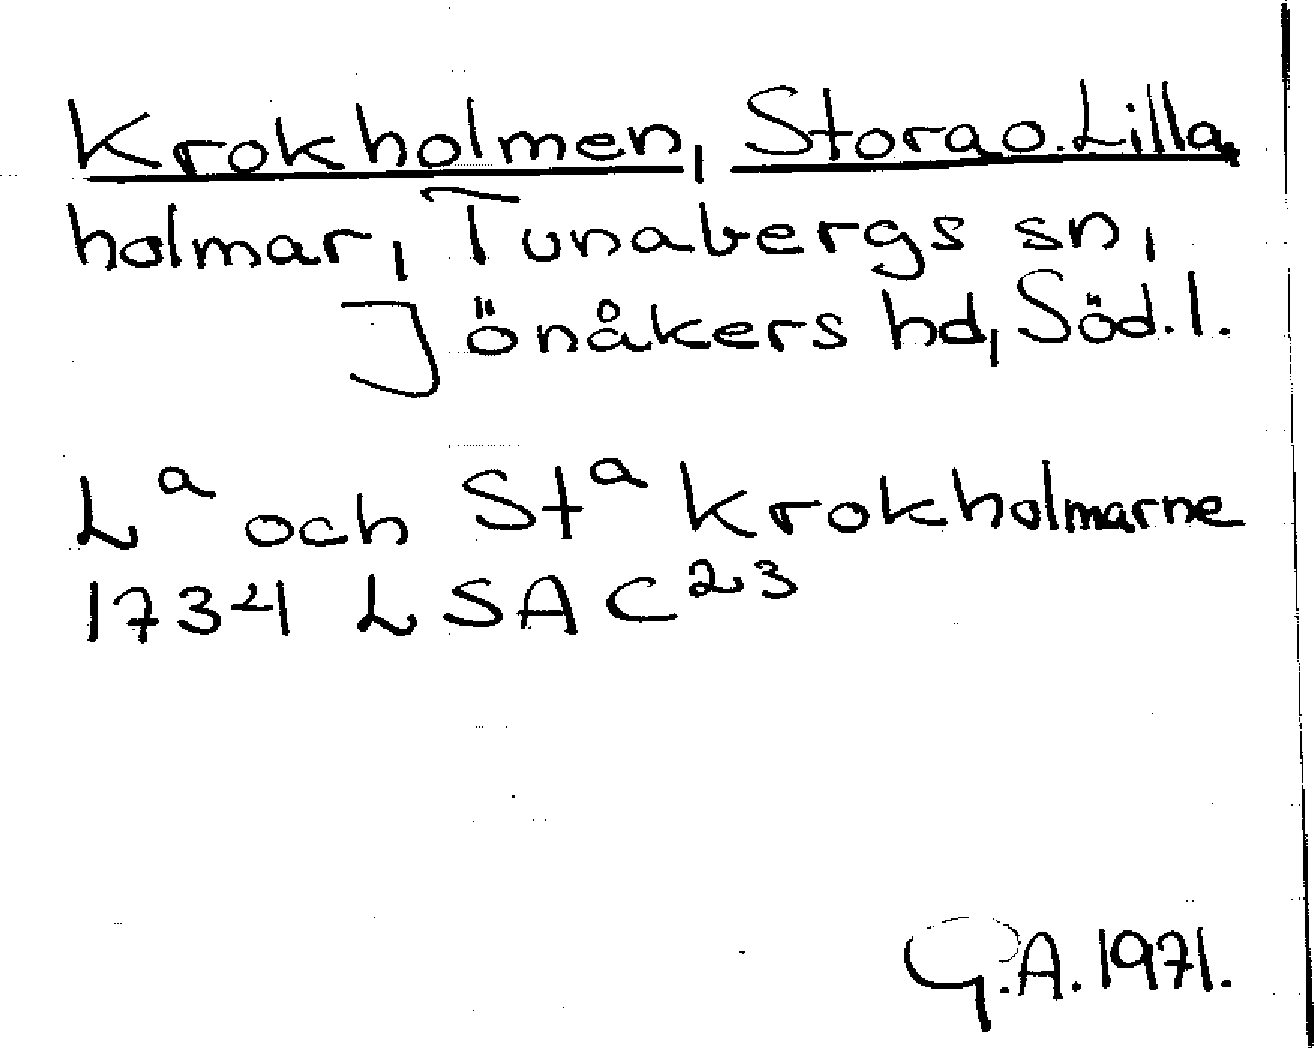 Krokholmen, Stora o. Lilla,
holmar, Tunabergs sn,
Jönåkers hd, Söd.l.
Lᵃ och Stᵃ Krokholmarne
1734 LSA C²³
G.A. 1971.